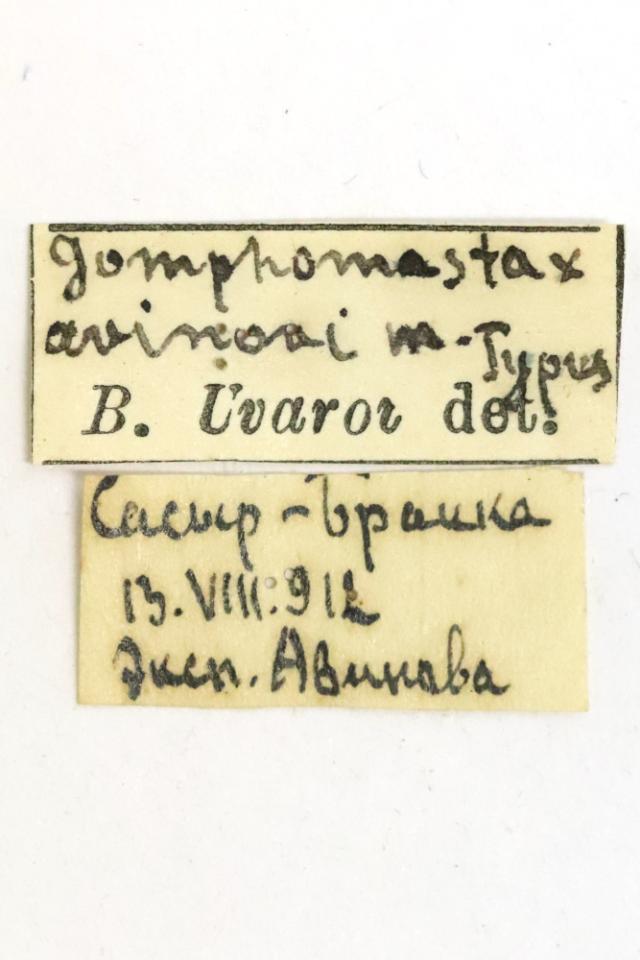 Gomphomastax
avinovi m. Typus
B. Uvarov det.
Сасыр-Бранка
13.VIII.912
Эксп. Авинова